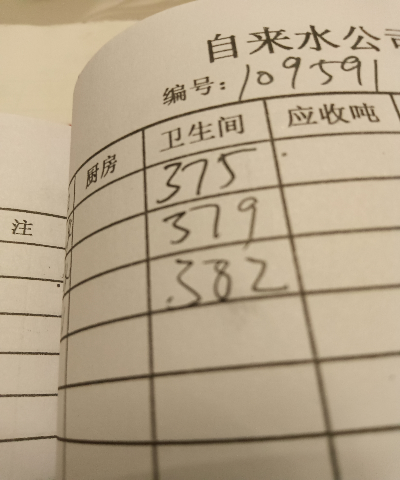 自来水公司
编号:109591
厨房 卫生间 应收吨
注
375
379
382